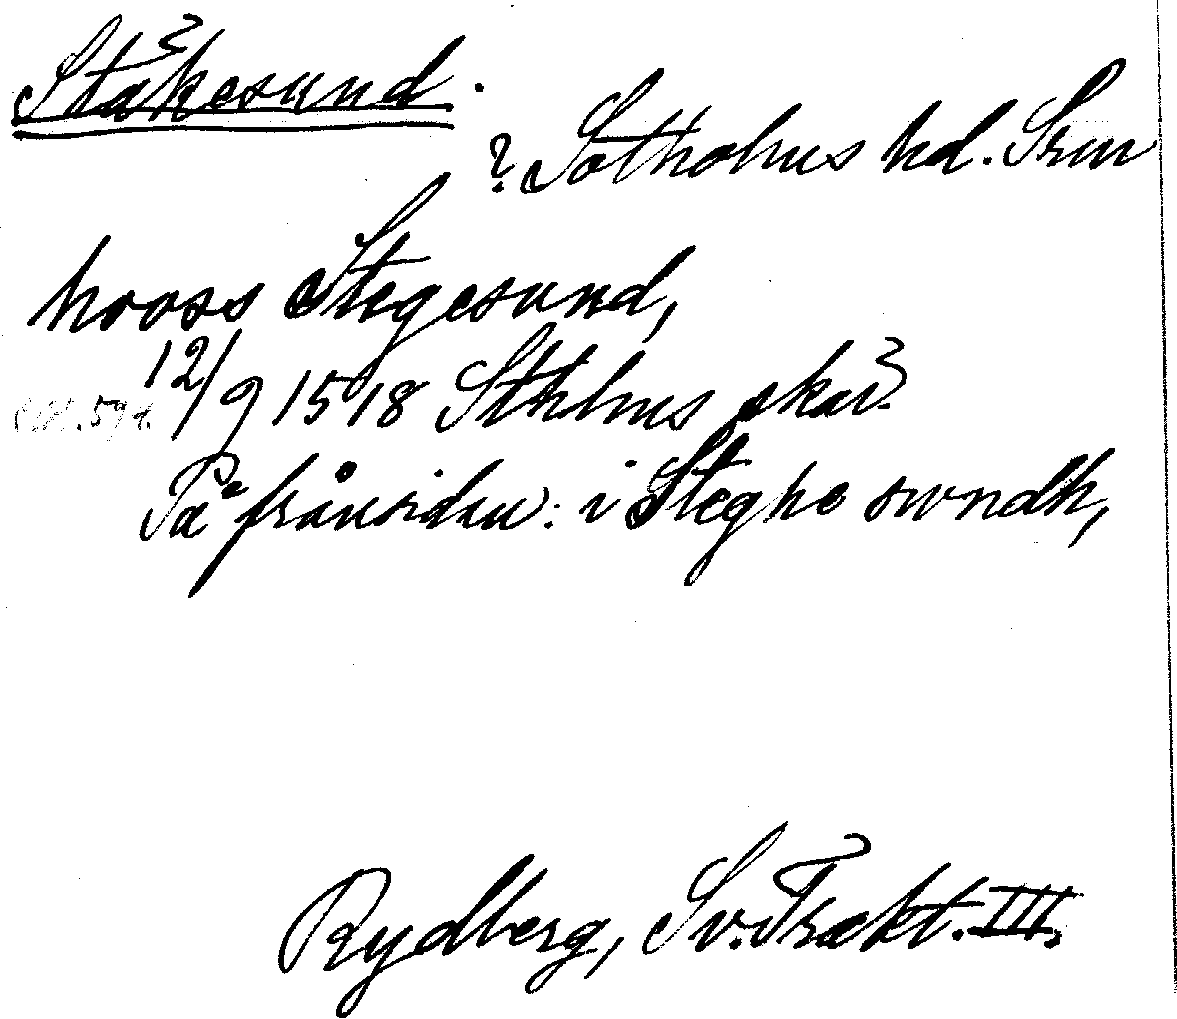 Stäkesund.
? Sotholms hd. Srm
hooss Stegesund,
12/9 1518 Sthlms skär?
På frånsidan: i Steghe swndh,
Rydberg, Sv. Trakt. III.